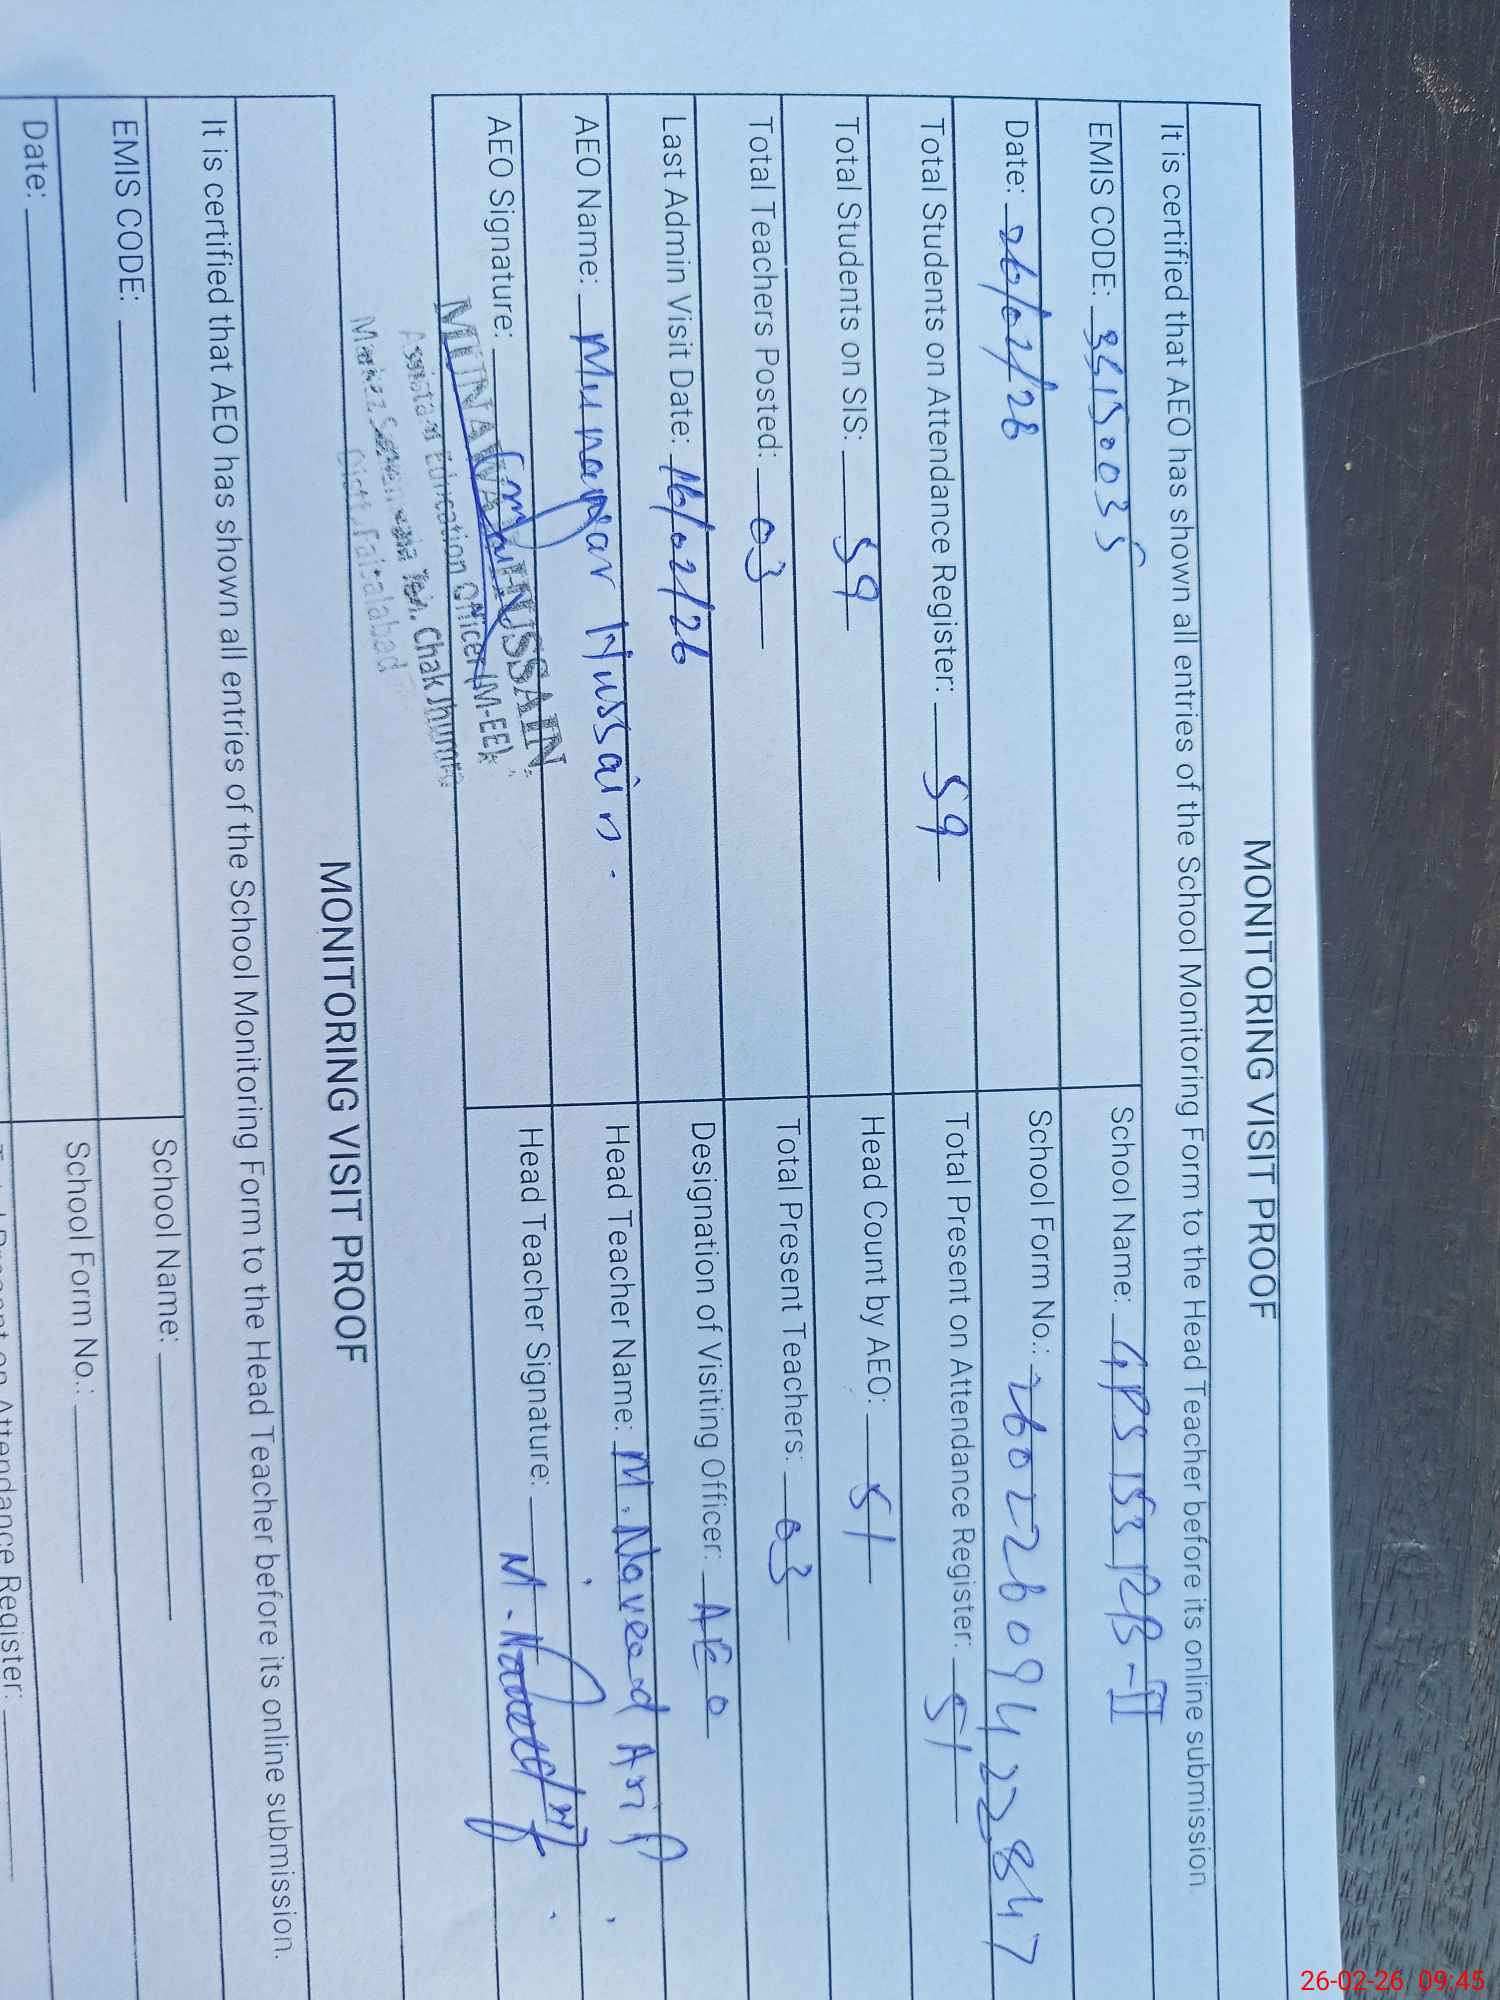 MONITORING VISIT PROOF
It is certified that AEO has shown all entries of the School Monitoring Form to the Head Teacher before its online submission.
EMIS CODE: 33150035 School Name: GPS 153 RB-II
Date: 26/02/26 School Form No.: 260226094422847
Total Students on Attendance Register: 59 Total Present on Attendance Register: 51
Total Students on SIS: 59 Head Count by AEO: 51
Total Teachers Posted: 03 Total Present Teachers: 03
Last Admin Visit Date: 16/02/26 Designation of Visiting Officer: AEO
AEO Name: Munawar Hussain. Head Teacher Name: M. Naveed Arif
AEO Signature: Head Teacher Signature: M. Naveed
MUNAWAR HUSSAIN
Assistant Education Officer (M-EE)
Markaz Teh. Chak Jhumra
Distt. Faisalabad
MONITORING VISIT PROOF
It is certified that AEO has shown all entries of the School Monitoring Form to the Head Teacher before its online submission.
EMIS CODE: School Name:
Date: School Form No.:
Total Present on Attendance Register:
26-02-26 09:45